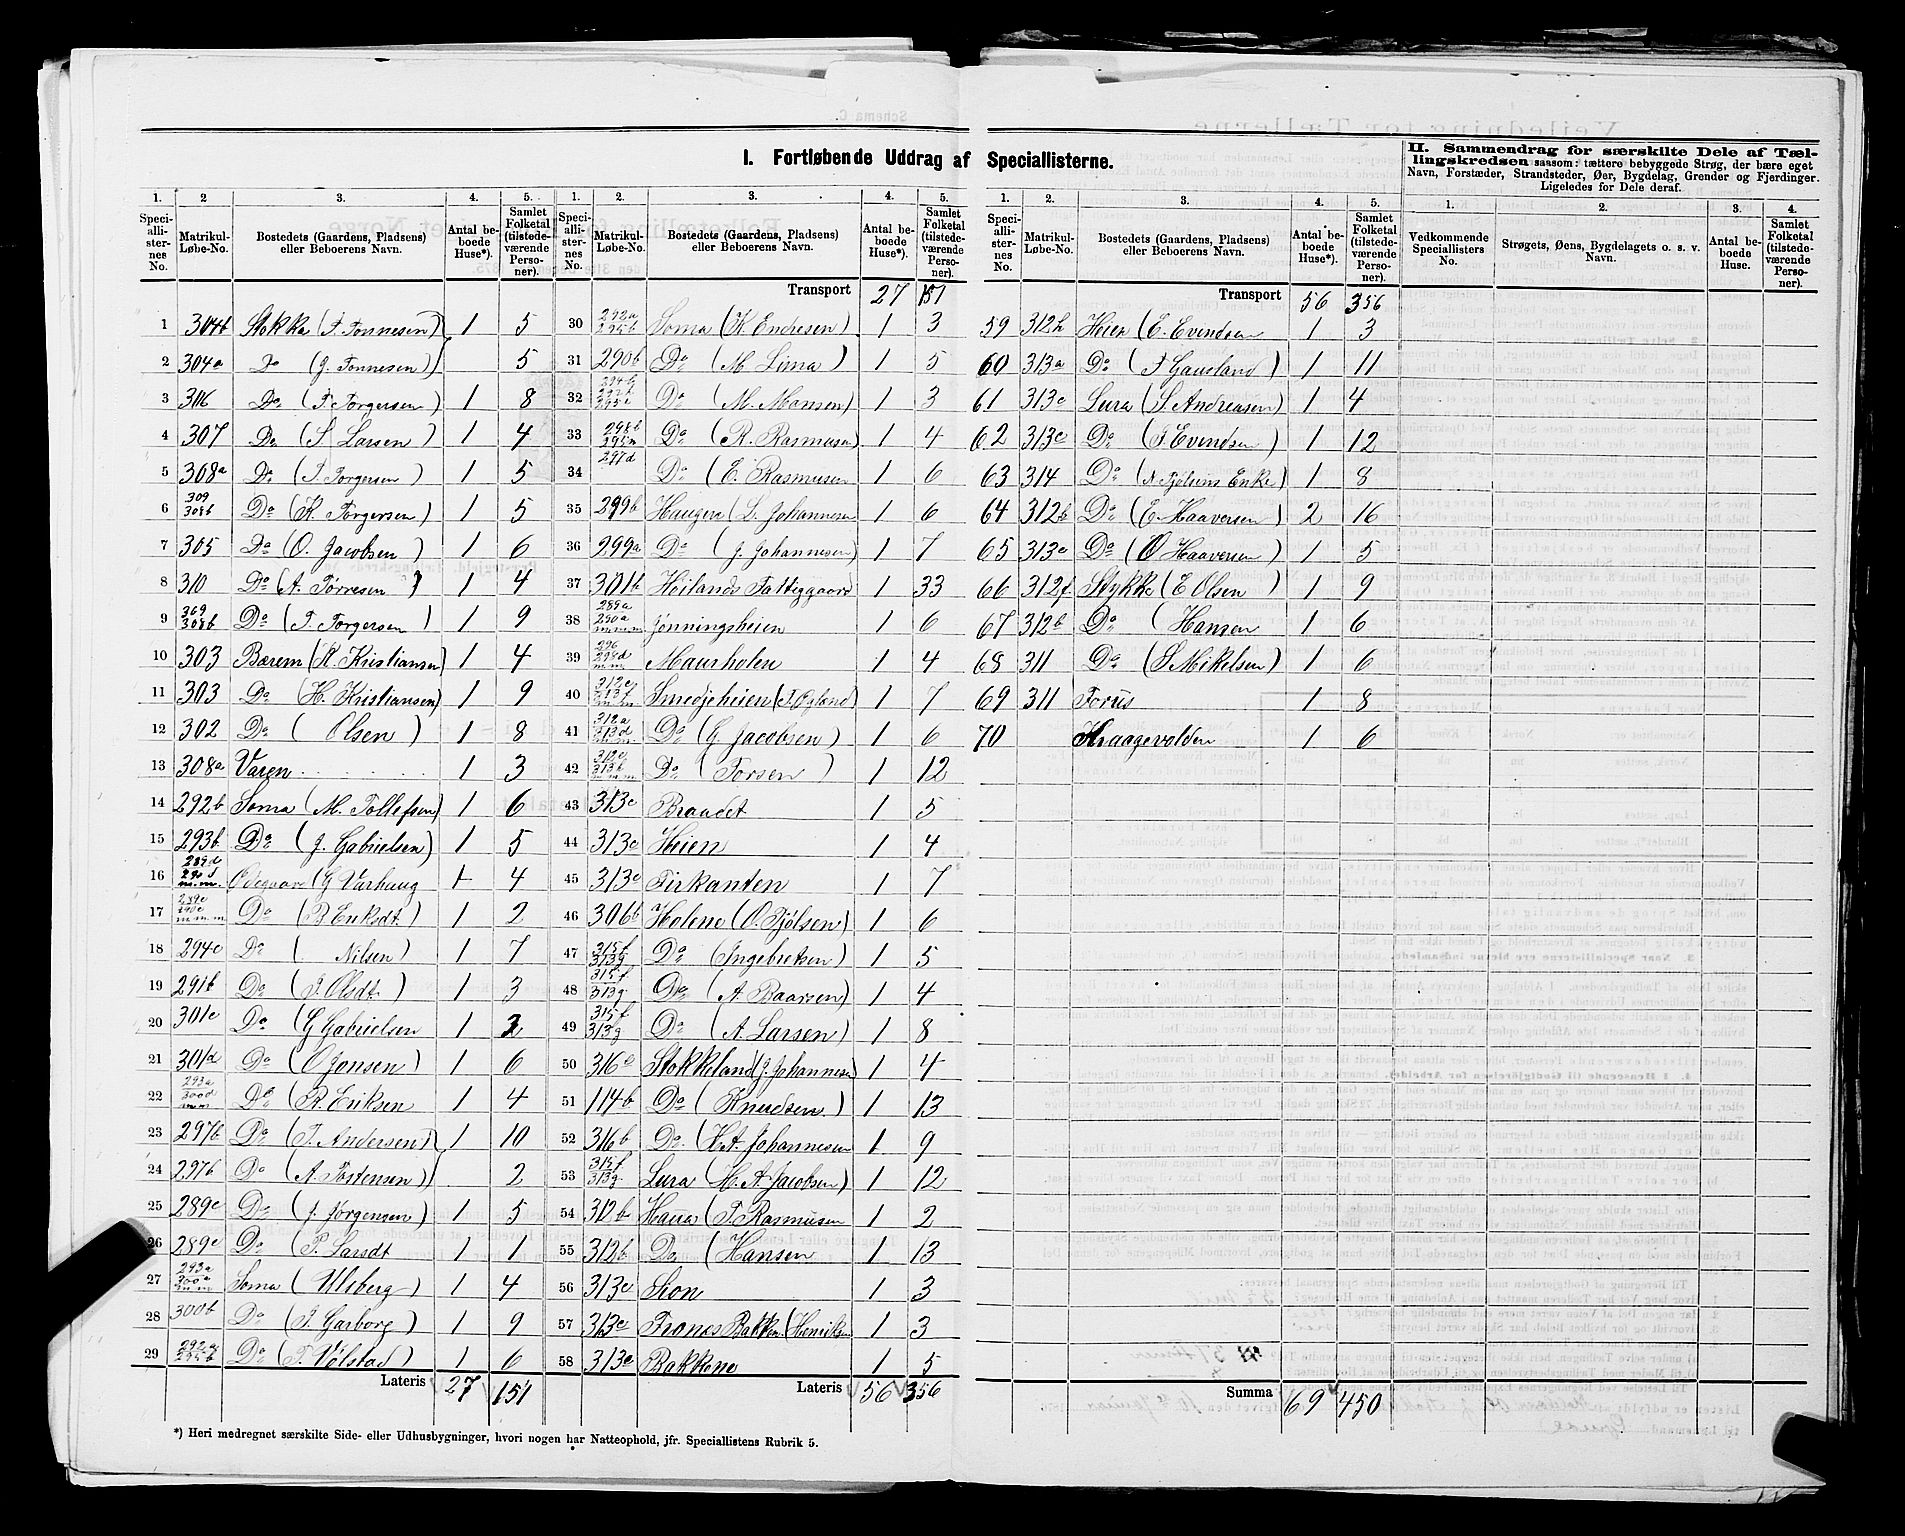 I. Fortløbende Uddrag af Speciallisterne.
II. Sammendrag for særskilte Dele af Tæl-
lingskredsen saasom: tættere bebyggede Strøg, der bære eget
Navn, Forstæder, Strandsteder, Øer, Bygdelag, Grender og Fjerdinger.
Ligeledes for Dele deraf.
1. 2 3. 4. 5. 1. 2. 3. 4. 5.
Speci-allister-nes No. Matrikul-Løbe-No. Bostedets (Gaardens, Pladsens) eller Beboerens Navn. Antal be-boede Huse*). Samlet Folketal (tilstede-værende Perso-ner).
Transport 27 151
1 304b Stokka (T. Tonnesen) 1 5
2 304a Do (J. Tonnesen) 5
3 306 Do (T. Torgersen) 1 8
4 307 Do (S. Larsen) 1 4
5 308a Do (T. Torgersen) 1 5
6 309 308b Do (K. Torgersen) 1 5
7 305 Do (O. Jacobsen) 1 6
8 310 Do (A. Tørresen) 1 4
9 369 308b Do (T. Torgersen) 1 9
10 303 Bærem (K. Kristiansen) 1 4
11 303 Do (H. Kristiansen) 1 9
12 302 Do (Olsen) 1 8
13 308a Varen 1 3
14 292b Soma (M. Tollefsen) 1 6
15 293b Do (J. Gabrielsen) 1 5
16 289d 290d m.m. Ødegaard (G Varhaug 1 4
17 289e 290e m.m.m Do (B. Eriksdt.) 1 2
18 294c Do (Nilsen) 1 7
19 291b Do (J. Olsdt) 1 3
20 301c Do (G Gabrielsen 1 2
21 301d Do (O Jonsen) 1 6
22 293a 300d m.m Do (R. Eriksen 1 4
23 297b Do (T. Andersen) 1 10
24 297b Do (A. Tostensen) 2
25 289c Do (J. Jørgensen) 1 5
26 289e Do (P. Larsdt 1 1
27 293a 300a m.m Soma (Ulsberg) 1 4
28 300b Do (T. Garborg) 1 9
29 292a 295b Do (T. Vølstad) 1 6
Lateris 27 151
30 292a 295b Soma (K. Endresen) 1 3
31 290b Do (M. Lima) 1 5
32 Do (M. Monsen) 1 3
33 298b 295a Do (R. Rasmusen) 1 4
34 297d Do (E. Rasmusen 1 6
35 299b Haugen (L. Johannesen 1 6
36 299a Do (J. Johannesen) 1 7
37 301b Høilands Fattiggaard 1 33
38 289a 290a m.m.m Jonningsheien 1 6
39 296 294d m.m Maurholen 1 4
40 312c 313f m.m Smedjeheien (T. Øgland) 1 7
41 312a 313d m.m.m Do (G. Jacobsen) 1 6
42 312c 313b m.m.m Do (Torsen) 1 12
43 313c Braadet 1 5
44 313c Heien 1 4
45 313c Firkanten 1 7
46 306b Holene (O. Tjølsen) 1 6
47 315f 313g Do (Ingebretsen) 1 5
48 315f 313g Do (A. Baarsen) 1 4
49 315f 313g Do (A. Larsen) 1 8
50 316c Stokkeland (J. Johannesen) 1 4
51 114b Do (Knudsen) 1 13
52 316b Do. (H.A. Johannesen 1 9
53 315f 313g Lura (H. A Jacobsen) 1 12
54 312b Hana (T. Rasmusen 1 2
55 312b Do (Hansen 1 13
56 313c Sion 1 3
57 313c Trones Bakken (Henriksen 1 3
58 313c Bakkene 1 5
Lateris 56 356
1. 2. 3. 4. 5. 1. 2. 3. 4.
Speci-allister-nes No. Matrikul-Løbe-No. Bostedets (Gaardens, Pladsens) eller Beboerens Navn. Antal be-boede Huse*). Samlet Folketal (tilstede-værende Perso-ner). Vedkommende Speciallisters No. Strøgets, Øens, Bygdelagets o. s. v. Navn. Antal be-boede Huse. Samlet Folketal (tilstede-værende Perso-ner).
Transport 56 356
59 312h Heien (E. Evindsen 1 3
60 313a Do (T Gausland) 1 11
61 313c Lura (S. Andreasen) 1 4
62 313c Do (T. Evindsen) 1 12
63 314 Do (A Tjølsens Enke) 1 8
64 312b Do (E. Haaversen) 2 16
65 313c Do (O Haaversen) 1 5
66 312f Stykke (E Olsen) 1 9
67 312b Do (Hansen 1 6
68 311 Do (S Mikelsen) 1 6
69 311 Forus 1 8
70 Kraagevolden 1 6
Summa 69 450
*) Heri medregnet særskilte Side- eller Udhusbygninger, hvori nogen har Natteophold, jfr. Speciallistens Rubrik 5.